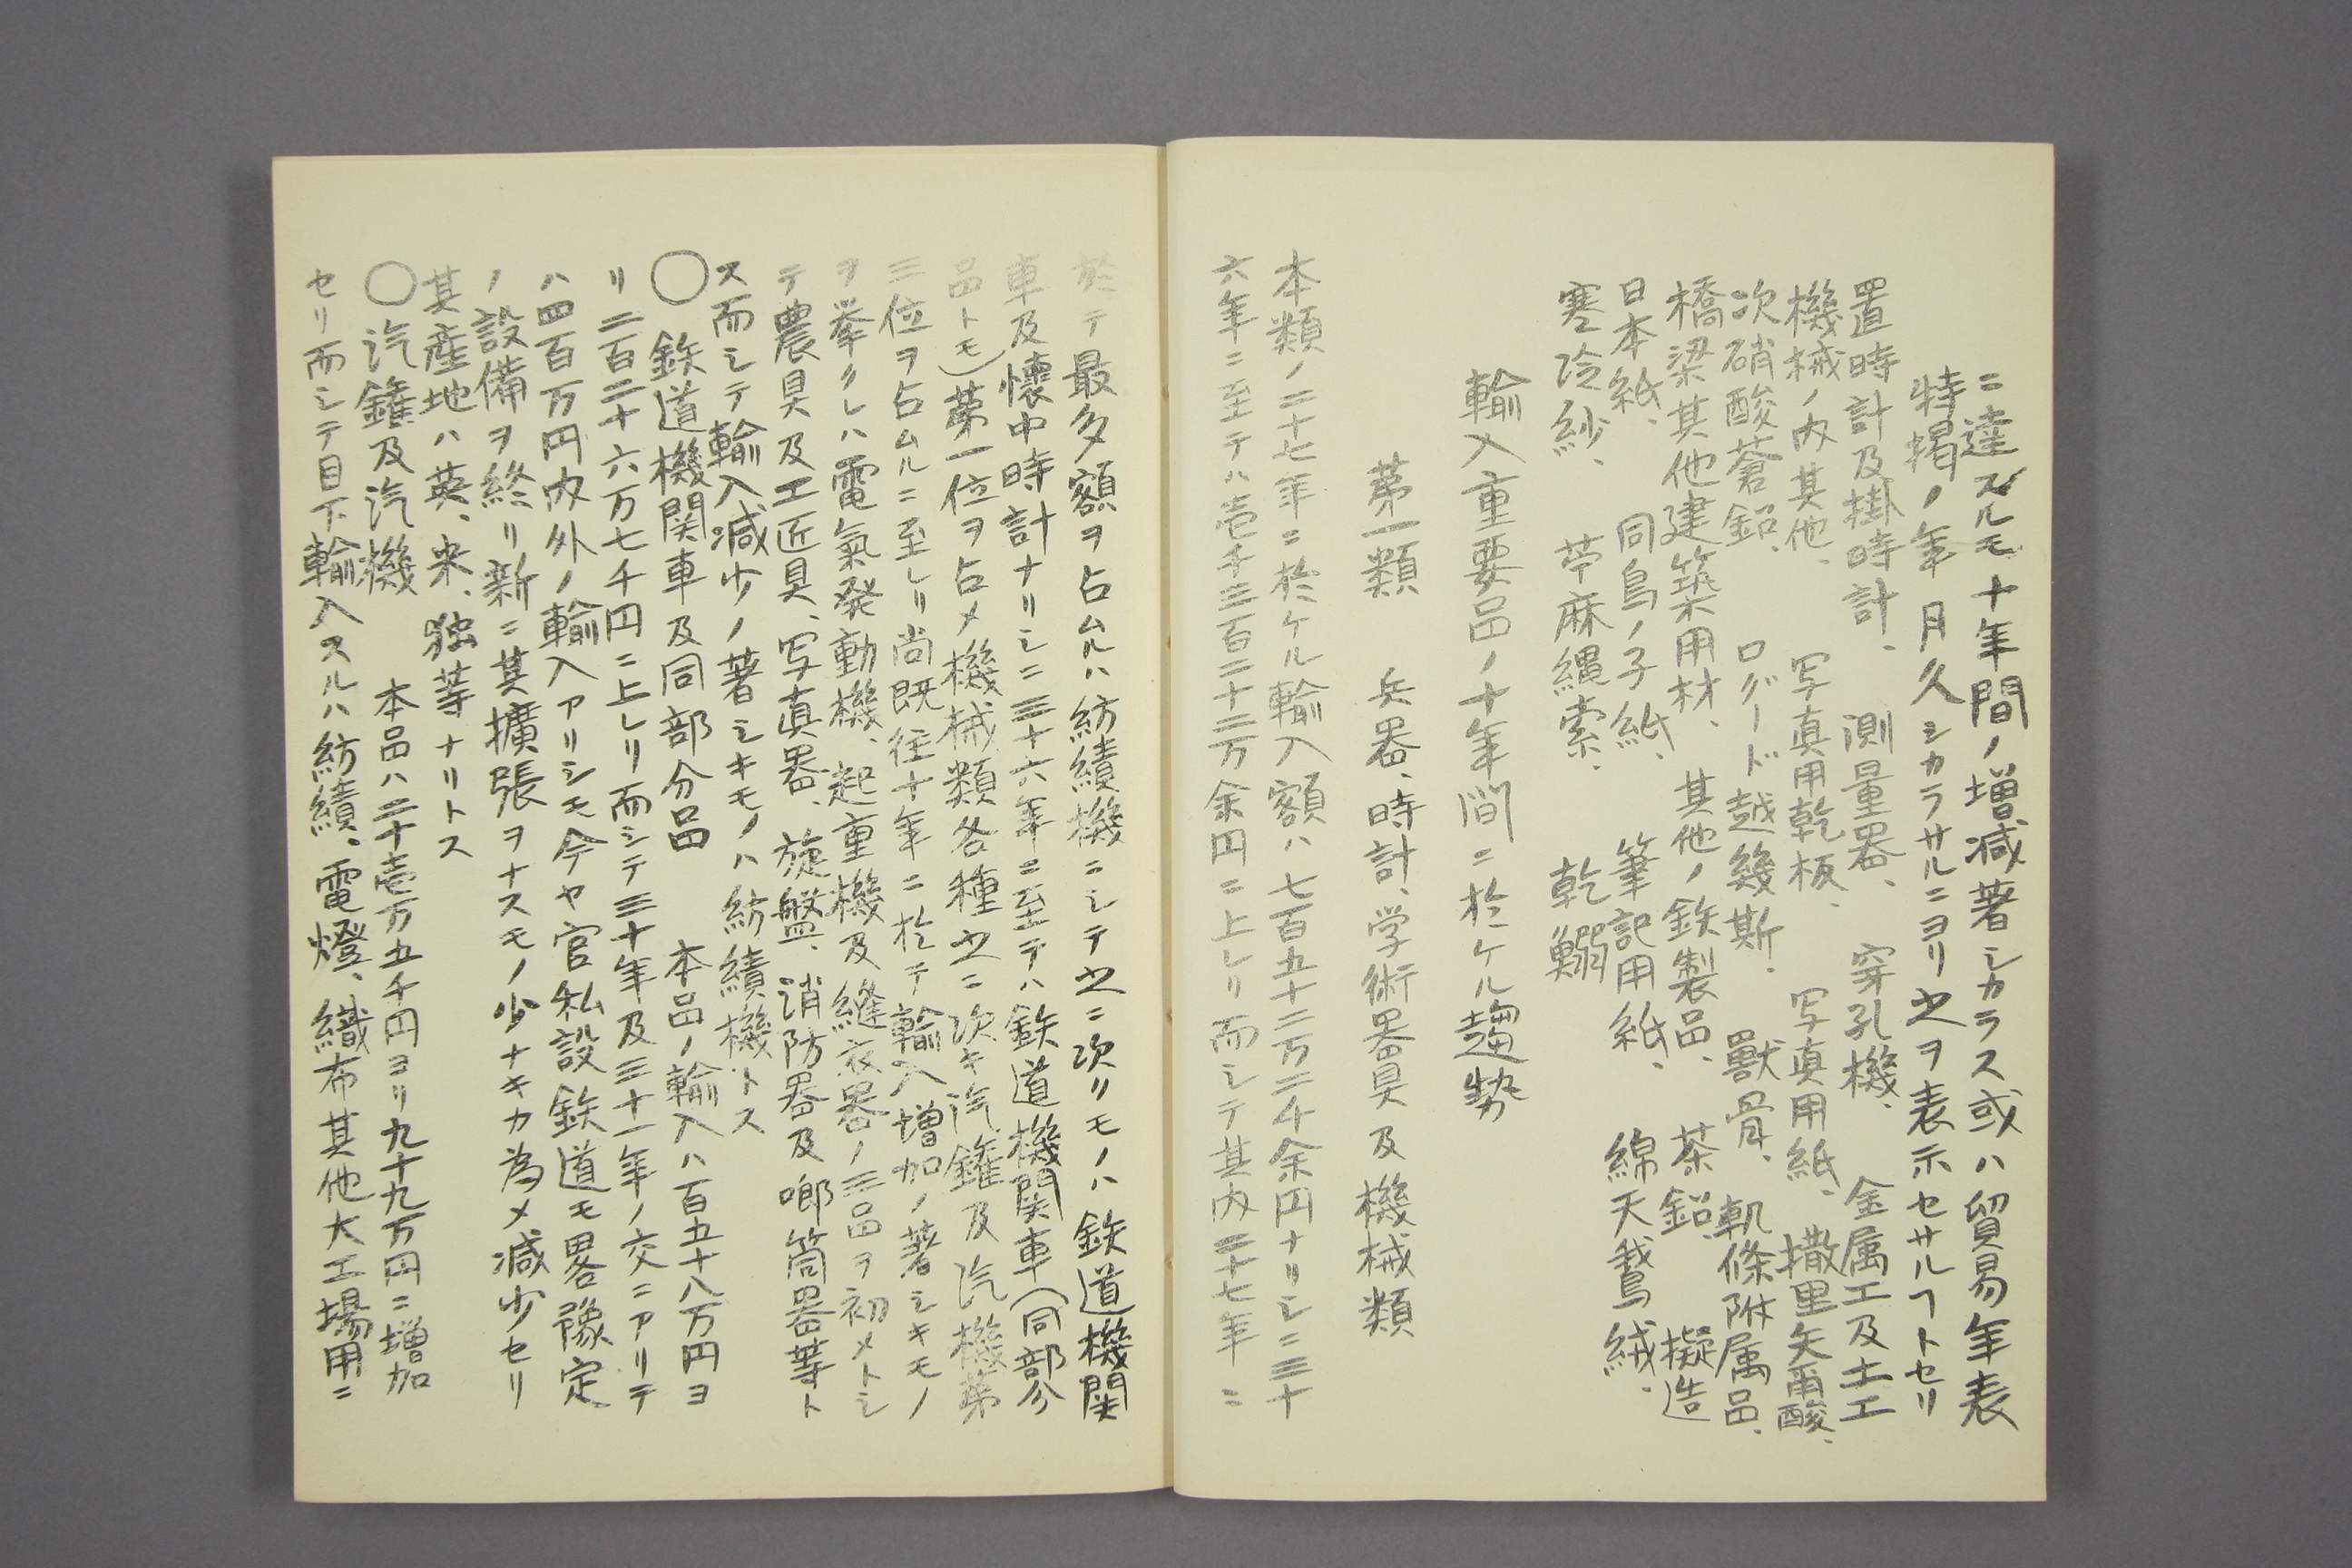 ニ達スルモ十年間ノ増減著シカラス或ハ貿易年表
特掲ノ年月久シカラサルニヨリ之ヲ表示セサルヿトセリ
置時計及掛時計、 測量器、 穿孔機、 金属工及土工
機械ノ内其他、 写真用乾板、 写真用紙、 撒里矢爾酸、
次硝酸蒼鉛、 ログード越幾斯、 獸骨、 軌條附属品、
橋梁其他建築用材、 其他ノ鉄製品、 茶鉛、 擬造
日本紙、 同鳥ノ子紙、 筆記用紙、 綿天鵞絨、
寒冷紗、 苧麻縄索、 乾鰯
輸入重要品ノ十年間ニ於ケル趨勢
第一類 兵器、時計、学術器具及機械類
本類ノ二十七年ニ於ケル輸入額ハ七百五十二万二千余円ナリシニ三十
六年ニ至テハ壱千三百二十二万余円ニ上レリ而シテ其内二十七年ニ
於テ最多額ヲ占ムルハ紡績機ニシテ之ニ次リモノハ鉄道機関
車及懐中時計ナリシニ三十六年ニ至テハ鉄道機関車(同部分
品トモ)第一位ヲ占メ機械類各種之ニ次キ汽鑵及汽機第
三位ヲ占ムルニ至レリ尚既往十年ニ於テ輸入増加ノ著シキモノ
ヲ挙クレハ電氣発動機、起重機及縫衣器ノ三品ヲ初メトシ
テ農具及工匠具、写真器、旋盤、消防器及喞筒器等ト
ス而シテ輸入減少ノ著シキモノハ紡績機トス
〇 鉄道機関車及同部分品 本品ノ輸入ハ百五十八万円ヨ
リ二百二十六万七千円ニ上レリ而シテ三十年及三十一年ノ交ニアリテ
ハ四百万円内外ノ輸入アリシモ今ヤ官私設鉄道モ畧豫定
ノ設備ヲ終リ新ニ其擴張ヲナスモノ少ナキカ為メ減少セリ
其産地ハ英、米、独等ナリトス
〇 汽鑵及汽機 本品ハ二十壱万五千円ヨリ九十九万円ニ増加
セリ而シテ目下輸入スルハ紡績、電燈、織布其他大工場用ニ